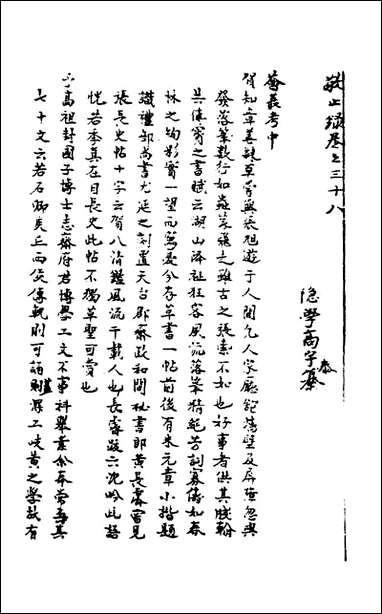 敬止錄卷之三十八
隐學高宇泰纂
薈蕞考中
賀知章善隸草嘗與張旭遊于人間凡人家廳館墻壁及屏障忽興
發落筆數行如蟲篆飛走雖古之張索不如也好事者供其牋翰
共傳寳之書賦云湖山降祉狂客風流落筆精絕芳詞寡儔如春
林之絢彩實一望而寫憂今存草書一帖前後有米元章小楷題
識禮部尚書尤延之刻置天台郡齋政和間秘書郎黄長睿嘗見
張長史帖十字云賀八清鑑風流千載人也長睿跋云沈吟此語
恍若季真在目長史此帖不獨草聖可賞也
高祖封國子博士志齋府君博學工文不事科舉業余弆嘗其
七十文云若石卿黄丘而俟傳軌則可謂深工岐黄之學故有